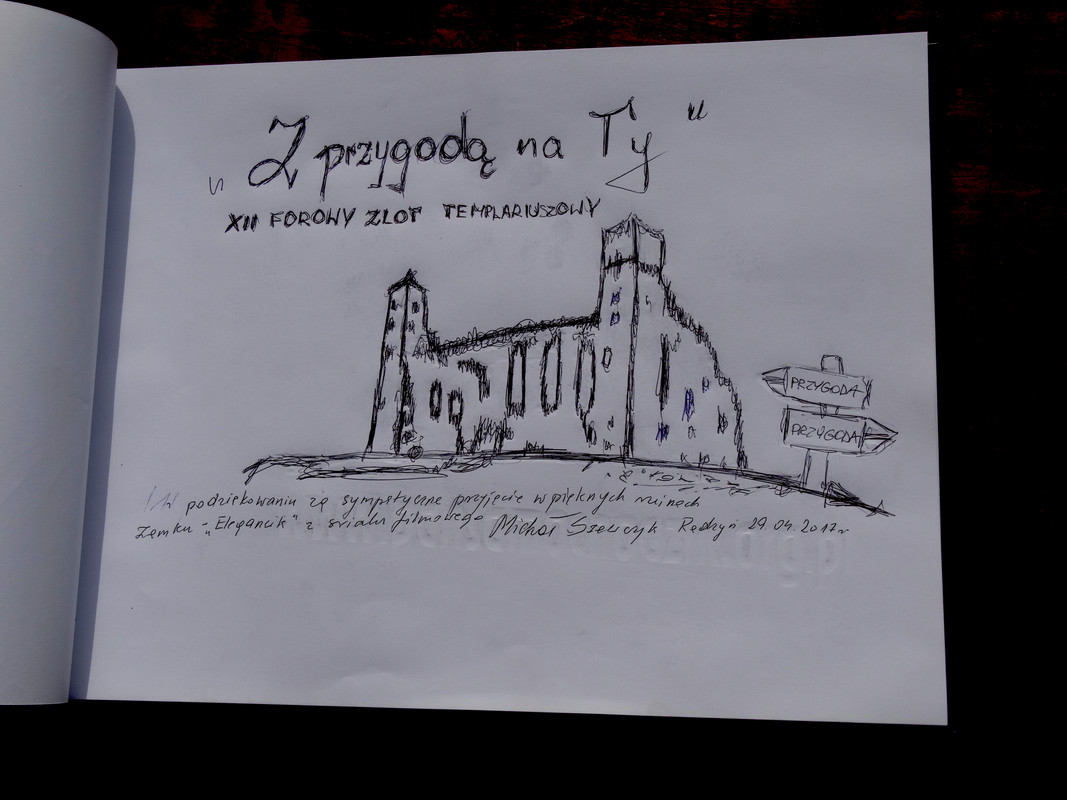 „Z przygodą na Ty“
XII FOROWY ZLOT TEMPLARIUSZOWY
PRZYGODA
PRZYGODA
W podziękowaniu za sympatyczne przyjęcie w pięknych ruinach
Zamku - „Elegancik“ z świata filmowego Michał Szewczyk Radzyń 29.04.2017r